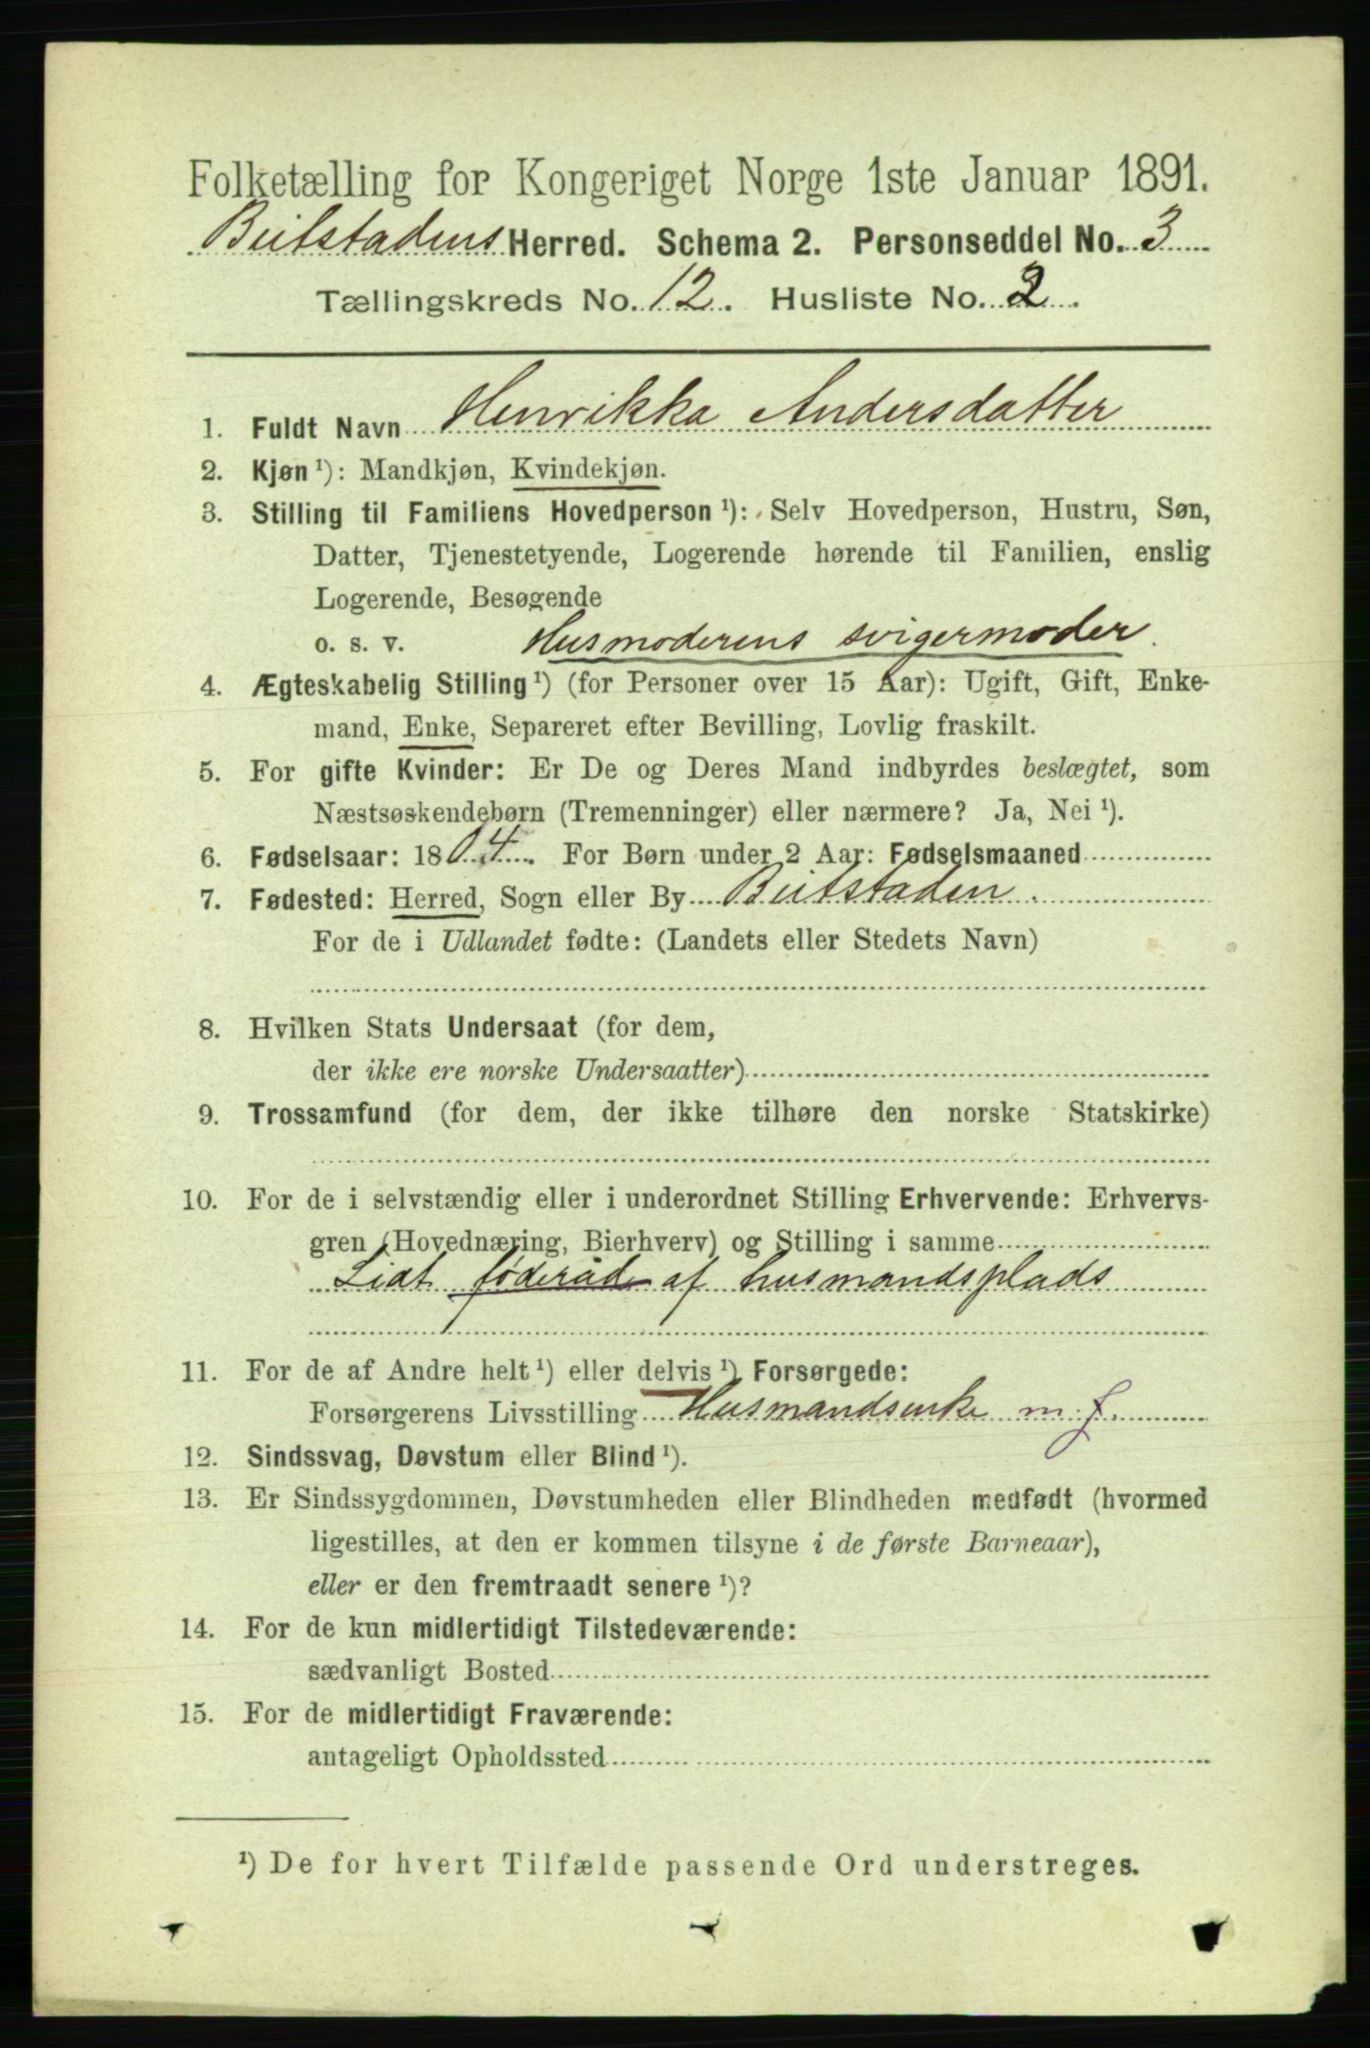 Folketælling for Kongeriget Norge 1ste Januar 1891.
Beitstadens Herred. Schema 2. Personseddel No. 3
Tællingskreds No. 12. Husliste No. 2.
1. Fuldt Navn Henrikka Andersdatter
2. Kjøn ¹): Mandkjøn, Kvindekjøn.
3. Stilling til Familiens Hovedperson ¹): Selv Hovedperson, Hustru, Søn,
Datter, Tjenestetyende, Logerende hørende til Familien, enslig
Logerende, Besøgende
o. s. v. Husmoderens svigermoder.
4. Ægteskabelig Stilling ¹) (for Personer over 15 Aar): Ugift, Gift, Enke-
mand, Enke, Separeret efter Bevilling, Lovlig fraskilt.
5. For gifte Kvinder: Er De og Deres Mand indbyrdes beslægtet, som
Næstsøskendebørn (Tremenninger) eller nærmere? Ja, Nei ¹).
6. Fødselsaar: 1804. For Børn under 2 Aar: Fødselsmaaned
7. Fødested: Herred, Sogn eller By Beitstaden.
For de i Udlandet fødte: (Landets eller Stedets Navn)
8. Hvilken Stats Undersaat (for dem,
der ikke ere norske Undersaatter)
9. Trossamfund (for dem, der ikke tilhøre den norske Statskirke)
10. For de i selvstændig eller i underordnet Stilling Erhvervende: Erhvervs-
gren (Hovednæring, Bierhverv) og Stilling i samme
Lidt føderåd af husmandsplads
11. For de af Andre helt ¹) eller delvis ¹) Forsørgede:
Forsørgerens Livsstilling Husmandsenke m. j.
12. Sindssvag, Døvstum eller Blind ¹).
13. Er Sindssygdommen, Døvstumheden eller Blindheden medfødt (hvormed
ligestilles, at den er kommen tilsyne i de første Barneaar),
eller er den fremtraadt senere ¹)?
14. For de kun midlertidigt Tilstedeværende:
sædvanligt Bosted
15. For de midlertidigt Fraværende:
antageligt Opholdssted
¹) De for hvert Tilfælde passende Ord understreges.